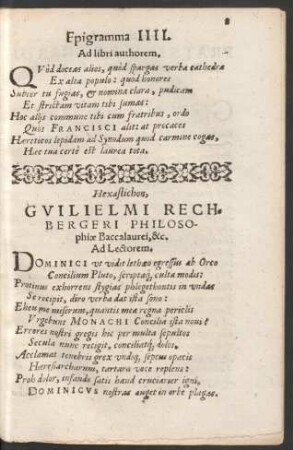 Epigramma IIII.
Ad libri authorem.
QVòd doctas alios, quòd spargas verba cathedra
Ex alta populo: quod honores
Subter tu fugias, & nomina clara, pudicam
Et strictam vitam tibi sumas:
Hoc aliis commune tibi cum fratribus, ordo
Quos FRANCISCI alit: at procaces
Hæreticos lepidam ad Synodum quod carmine cogas,
Hæc tua certè est laurea tota.
Hexastichon,
GVILIELMI RECH-
BERGERI PHILOSO-
phiæ Baccalaurei, &c.
Ad Lectorem.
DOMINICI vt vidit lethæo egressus ab Orco
Concilium Pluto, scriptaq́; culta modis:
Protinus exhorrens stygias phlegethontis in vndas
Se recipit, diro verba dat ista sono:
Eheu me miserum, quantis mea regna periclis
Vrgebunt MONACHI Concilia ista noui!
Errores nostri gregis hic per multa sepultos
Secula nunc retigit, conciliatq́; doles.
Acclamat tenebris grex vndiq́; septus opacis
Hæresiarcharum, tartara voce replens:
Proh dolor, infandi satis haud cruciamur igni,
DOMINICVS nostras auget in orbe plagas.